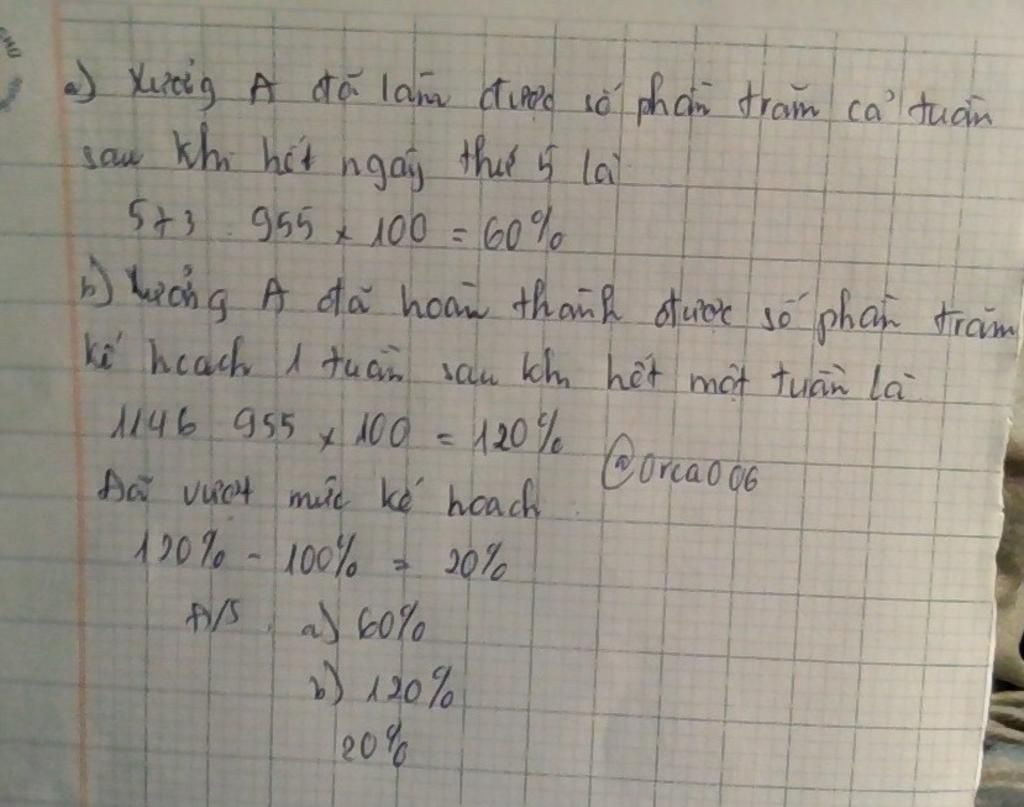 a) Xưởng A đã làm được số phần trăm cả tuần
sau khi hết ngày thứ 5 là
573 : 955 x 100 = 60%
b) Xưởng A đã hoàn thành được số phần trăm
kế hoạch 1 tuần sau khi hết một tuần là
1146 955 x 100 = 120%
@Orca006
Đã vượt mức kế hoạch.
120% - 100% = 20%
Đ/S : a) 60%
b) 120%
20%